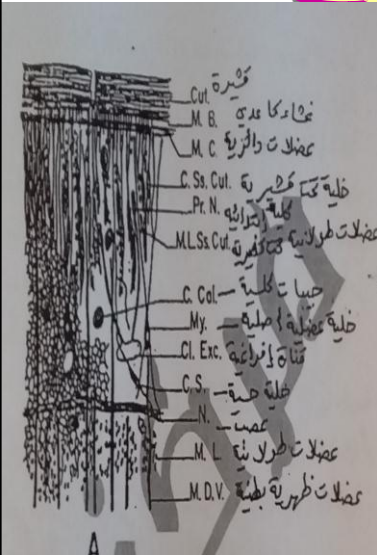 Cut. قشيرة
M. B. غشاء قاعدي
M. C. عضلات دائرية
C. Ss. Cut. خلية تحت قشيرية
Pr. N. كلية ابتدائية
M.L.Ss.Cut. عضلات طولانية تحت قشيرية
C. Cal. حبيبات كلسية
My. خلية عضلية أصلية
Cl. Exc. قناة إفراغية
C. S. خلية حسية
N. عصب
M. L. عضلات طولانية
M. D. V. عضلات ظهرية بطنية
A